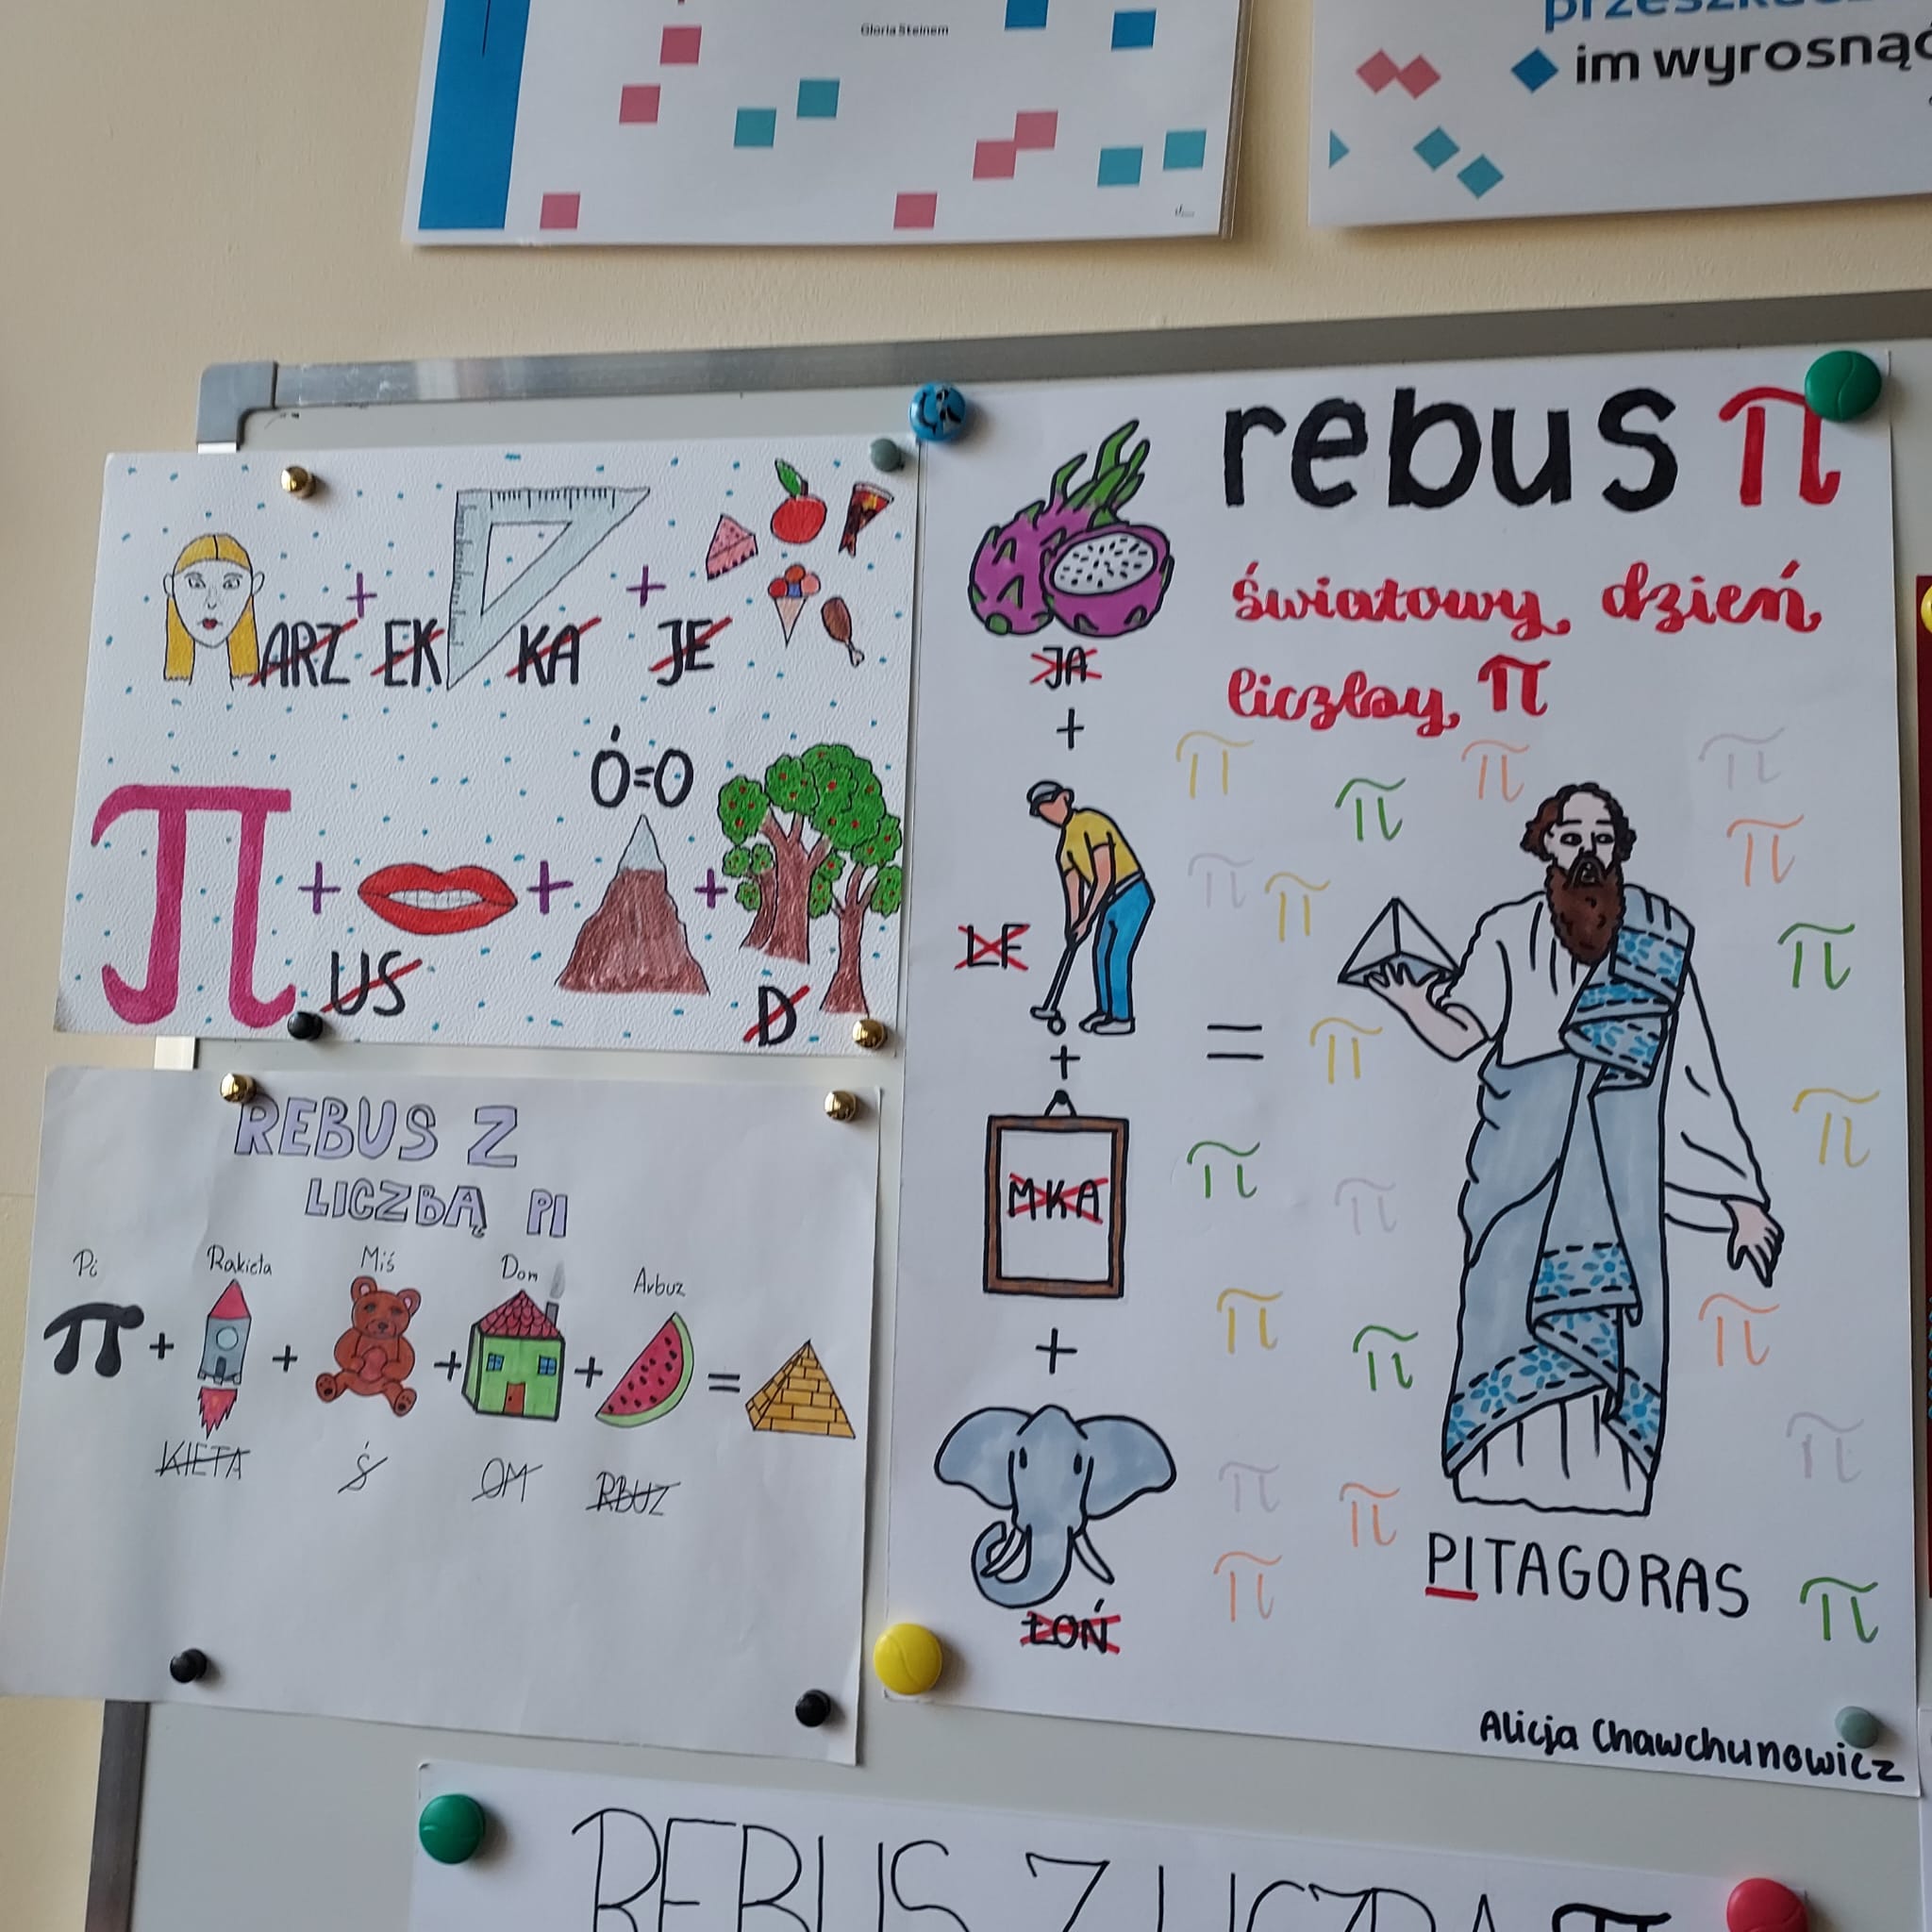 Gloria Steinem
im wyrosnąć
ARZ EK KA JE
Ó=O
π
US
D
REBUS Z
LICZBĄ PI
Pi Rakieta Miś Dom Arbuz
π + + + + =
KIETA Ś OM RBUZ
rebus π
światowy dzień
liczby π
JA
LF
MKA
ŁOŃ
PITAGORAS
Alicja Chawchunowicz
REBUS Z LICZBĄ π